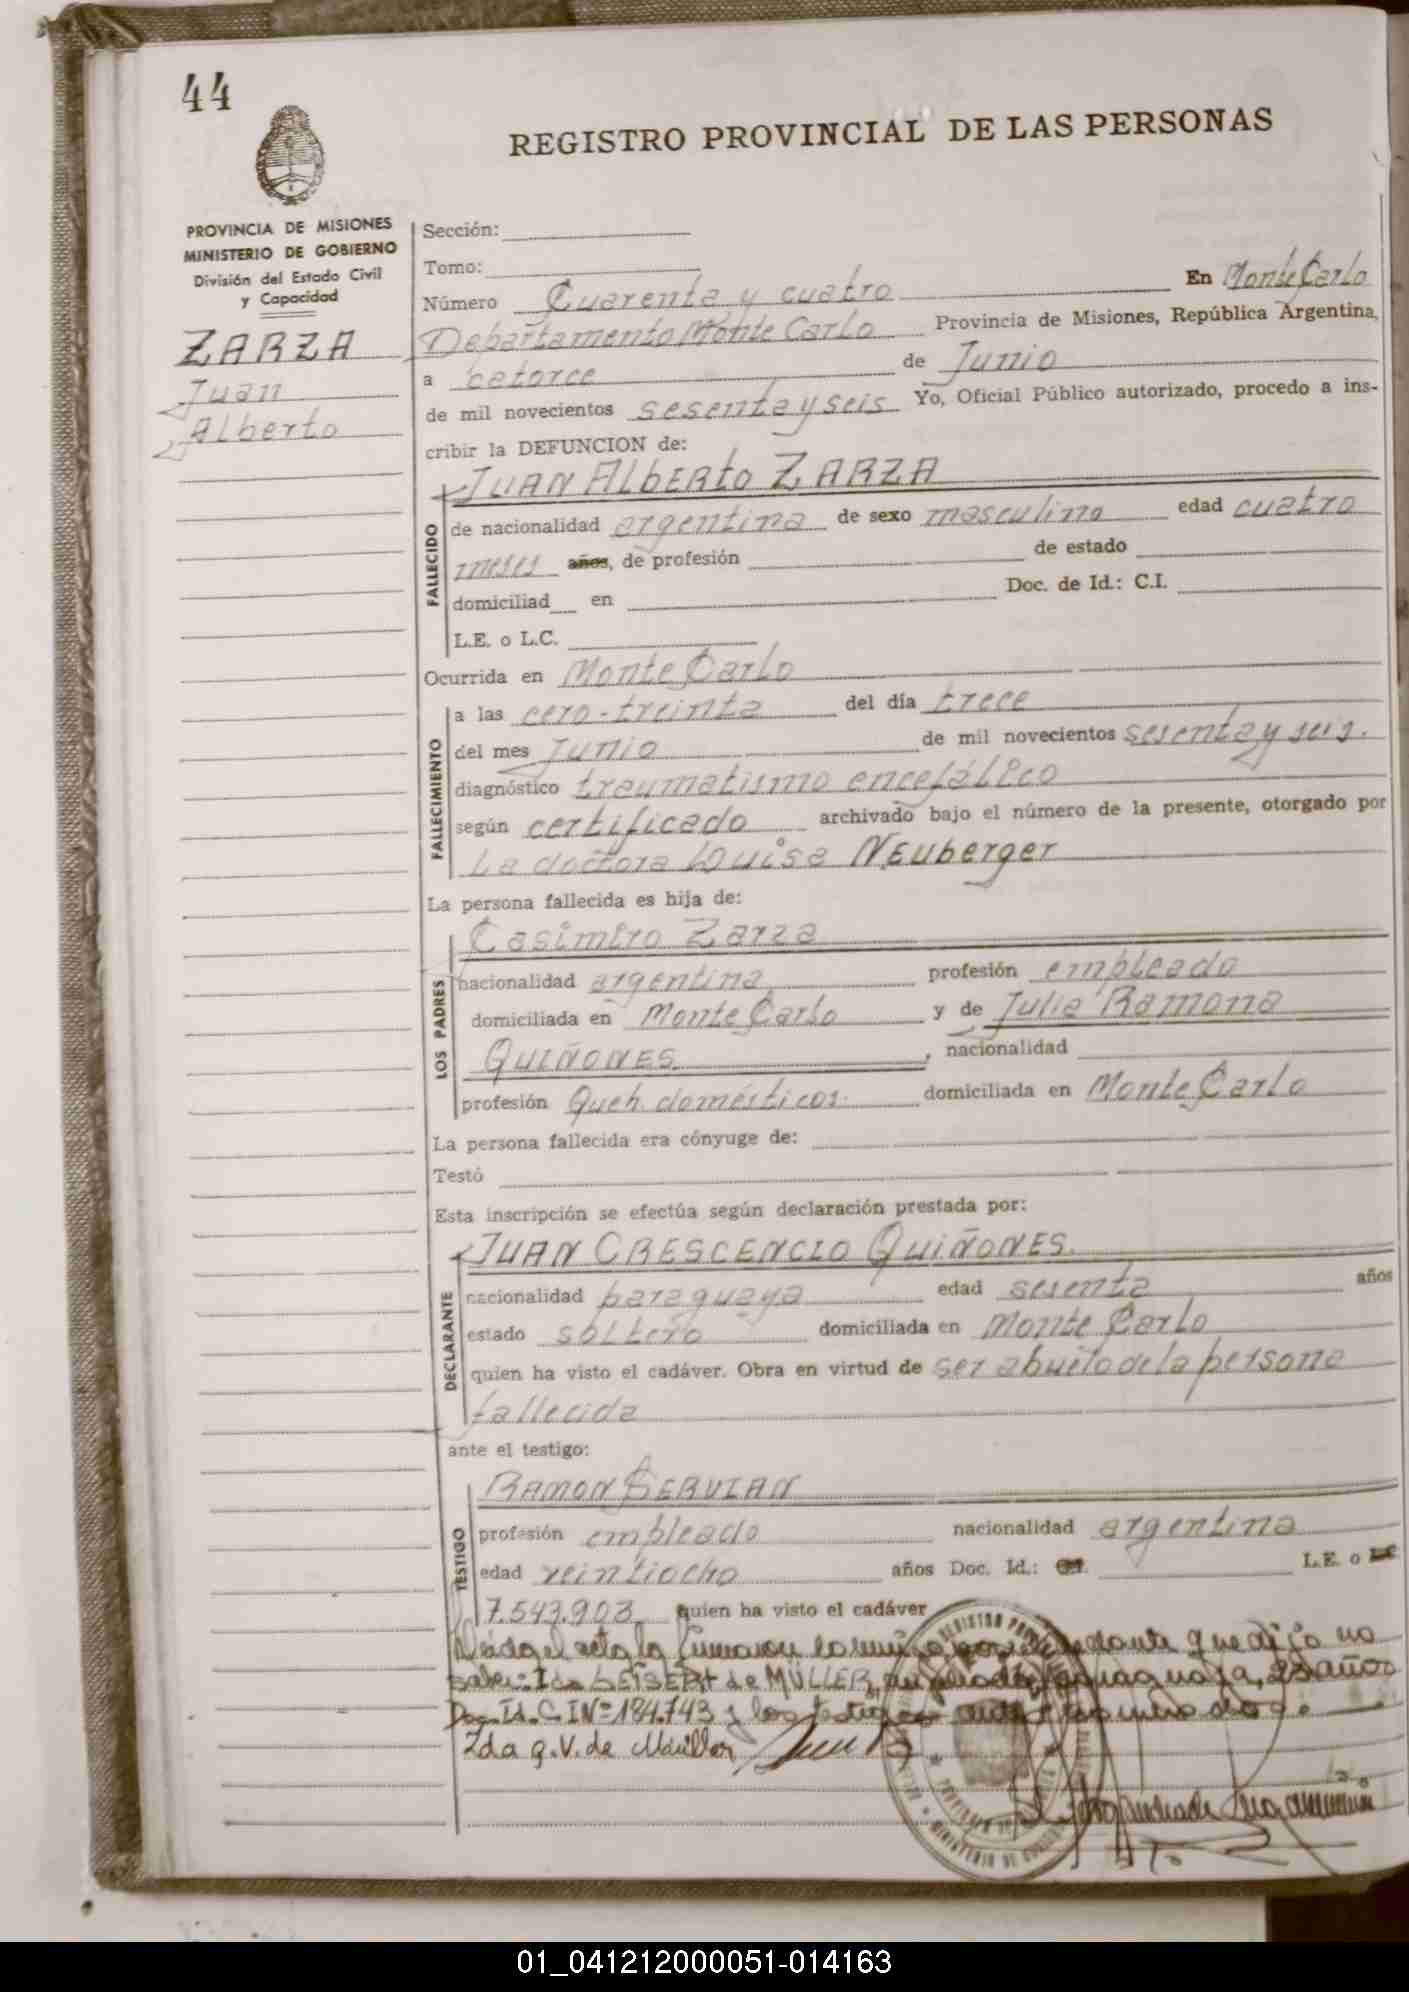 44
REGISTRO PROVINCIAL DE LAS PERSONAS
PROVINCIA DE MISIONES
MINISTERIO DE GOBIERNO
División del Estado Civil
y Capacidad
ZARZA
Juan
Alberto
Sección:
Tomo:
Número Cuarenta y cuatro En Monte Carlo
Departamento Monte Carlo Provincia de Misiones, República Argentina,
a catorce de Junio
de mil novecientos sesenta y seis Yo, Oficial Público autorizado, procedo a ins-
cribir la DEFUNCION de:
FALLECIDO
JUAN AlbERto ZARZA
de nacionalidad argentina de sexo masculino edad cuatro
meses años, de profesión de estado
domiciliad en Doc. de Id.: C.I.
L.E. o L.C.
Ocurrida en Monte Carlo
FALLECIMIENTO
a las cero-treinta del día trece
del mes Junio de mil novecientos sesenta y seis.
diagnóstico traumatismo encefálico
según certificado archivado bajo el número de la presente, otorgado por
La doctora Louisa NEuberger
La persona fallecida es hija de:
LOS PADRES
Casimiro Zarza
nacionalidad argentina profesión empleado
domiciliada en Monte Carlo y de Julia Ramona
QUIÑONES , nacionalidad
profesión Queh. domésticos. domiciliada en Monte Carlo
La persona fallecida era cónyuge de:
Testó
Esta inscripción se efectúa según declaración prestada por:
DECLARANTE
JUAN CRESCENCIO QUIÑONES.
nacionalidad paraguaya edad sesenta años
estado soltero domiciliada en Monte Carlo
quien ha visto el cadáver. Obra en virtud de ser abuelo de la persona
fallecida
ante el testigo:
TESTIGO
RAMON SERVIAN
profesión empleado nacionalidad argentina
edad veintiocho años Doc. Id.: C.I. L.E. o L.C.
7.543.903 quien ha visto el cadáver
Leída el acta la firmaron conmigo, por el declarante que dijo no
saber: Ida SEIBERt de MÜLLER, paraguaya, años
Doc. Id. C.I Nº 184.743 y los testigos
Ida g. V. de Müller
REGISTRO
PROVINCIA DE
MINISTERIO DE GOBIERNO
01_041212000051-014163